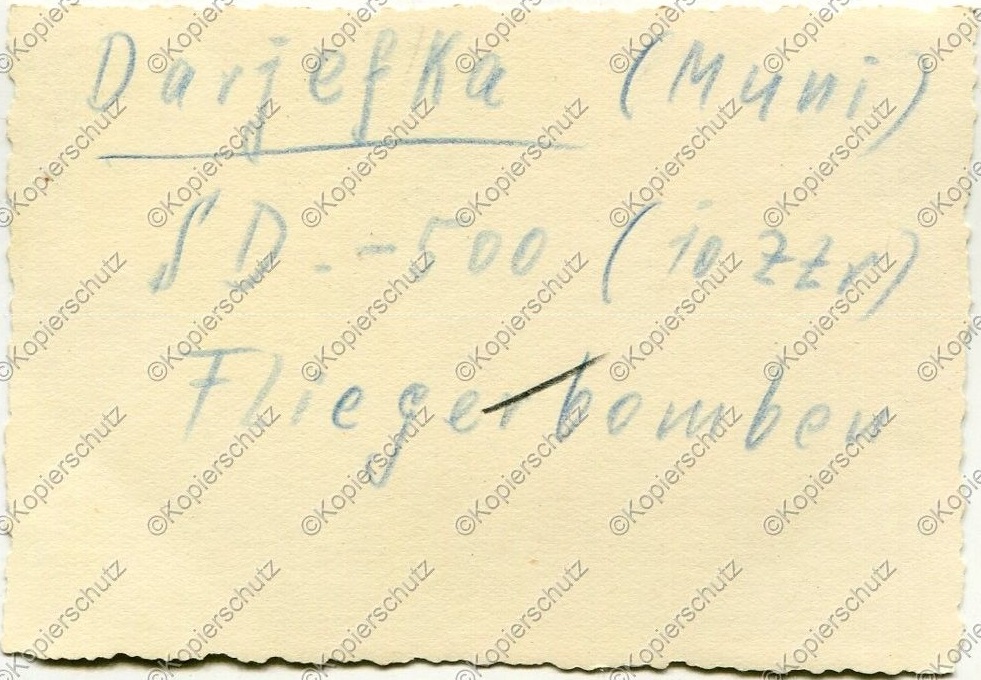 Darjefka (Muni)
SD.-500 (10 Ztr)
Fliegerbomben
©Kopierschutz